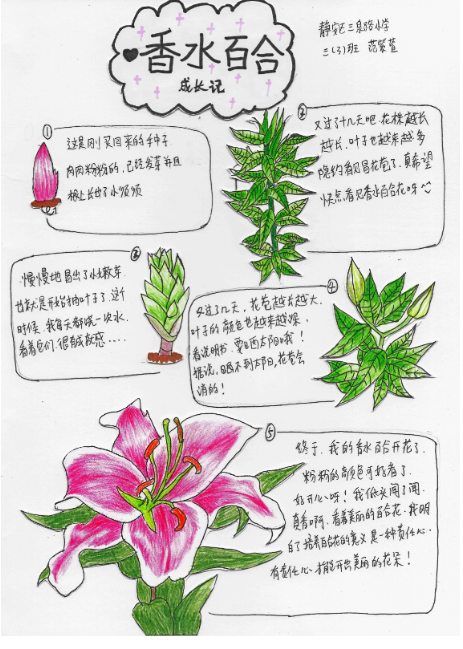 香水百合
成长记
静安区三泉路小学
三(3)班 范紫萱
①
这是刚买回来的种子.
肉肉粉粉的,已经发芽并且
根上长出了小须须
②
又过了十几天吧.花株越长
越长,叶子也越来越多
隐约看见冒花苞了.真希望
快点看见香水百合花呀
③
慢慢地冒出了小嫩芽.
也就是开始抽叶子了.这个
时候.我每天都喷一次水.
看着它们.很有成就感....
④
又过了几天,花苞越长越大.
叶子的颜色也越来越深.
看说明书.要晒太阳哦!
据说,晒不到太阳,花苞会
消的!
⑤
终于.我的香水百合开花了.
粉粉的颜色可好看了.
好开心呀!我低头闻了闻.
真香啊.看着美丽的百合花.我明
白了培养百合花的意义是一种责任心.
有责任心.才能开出美丽的花朵!